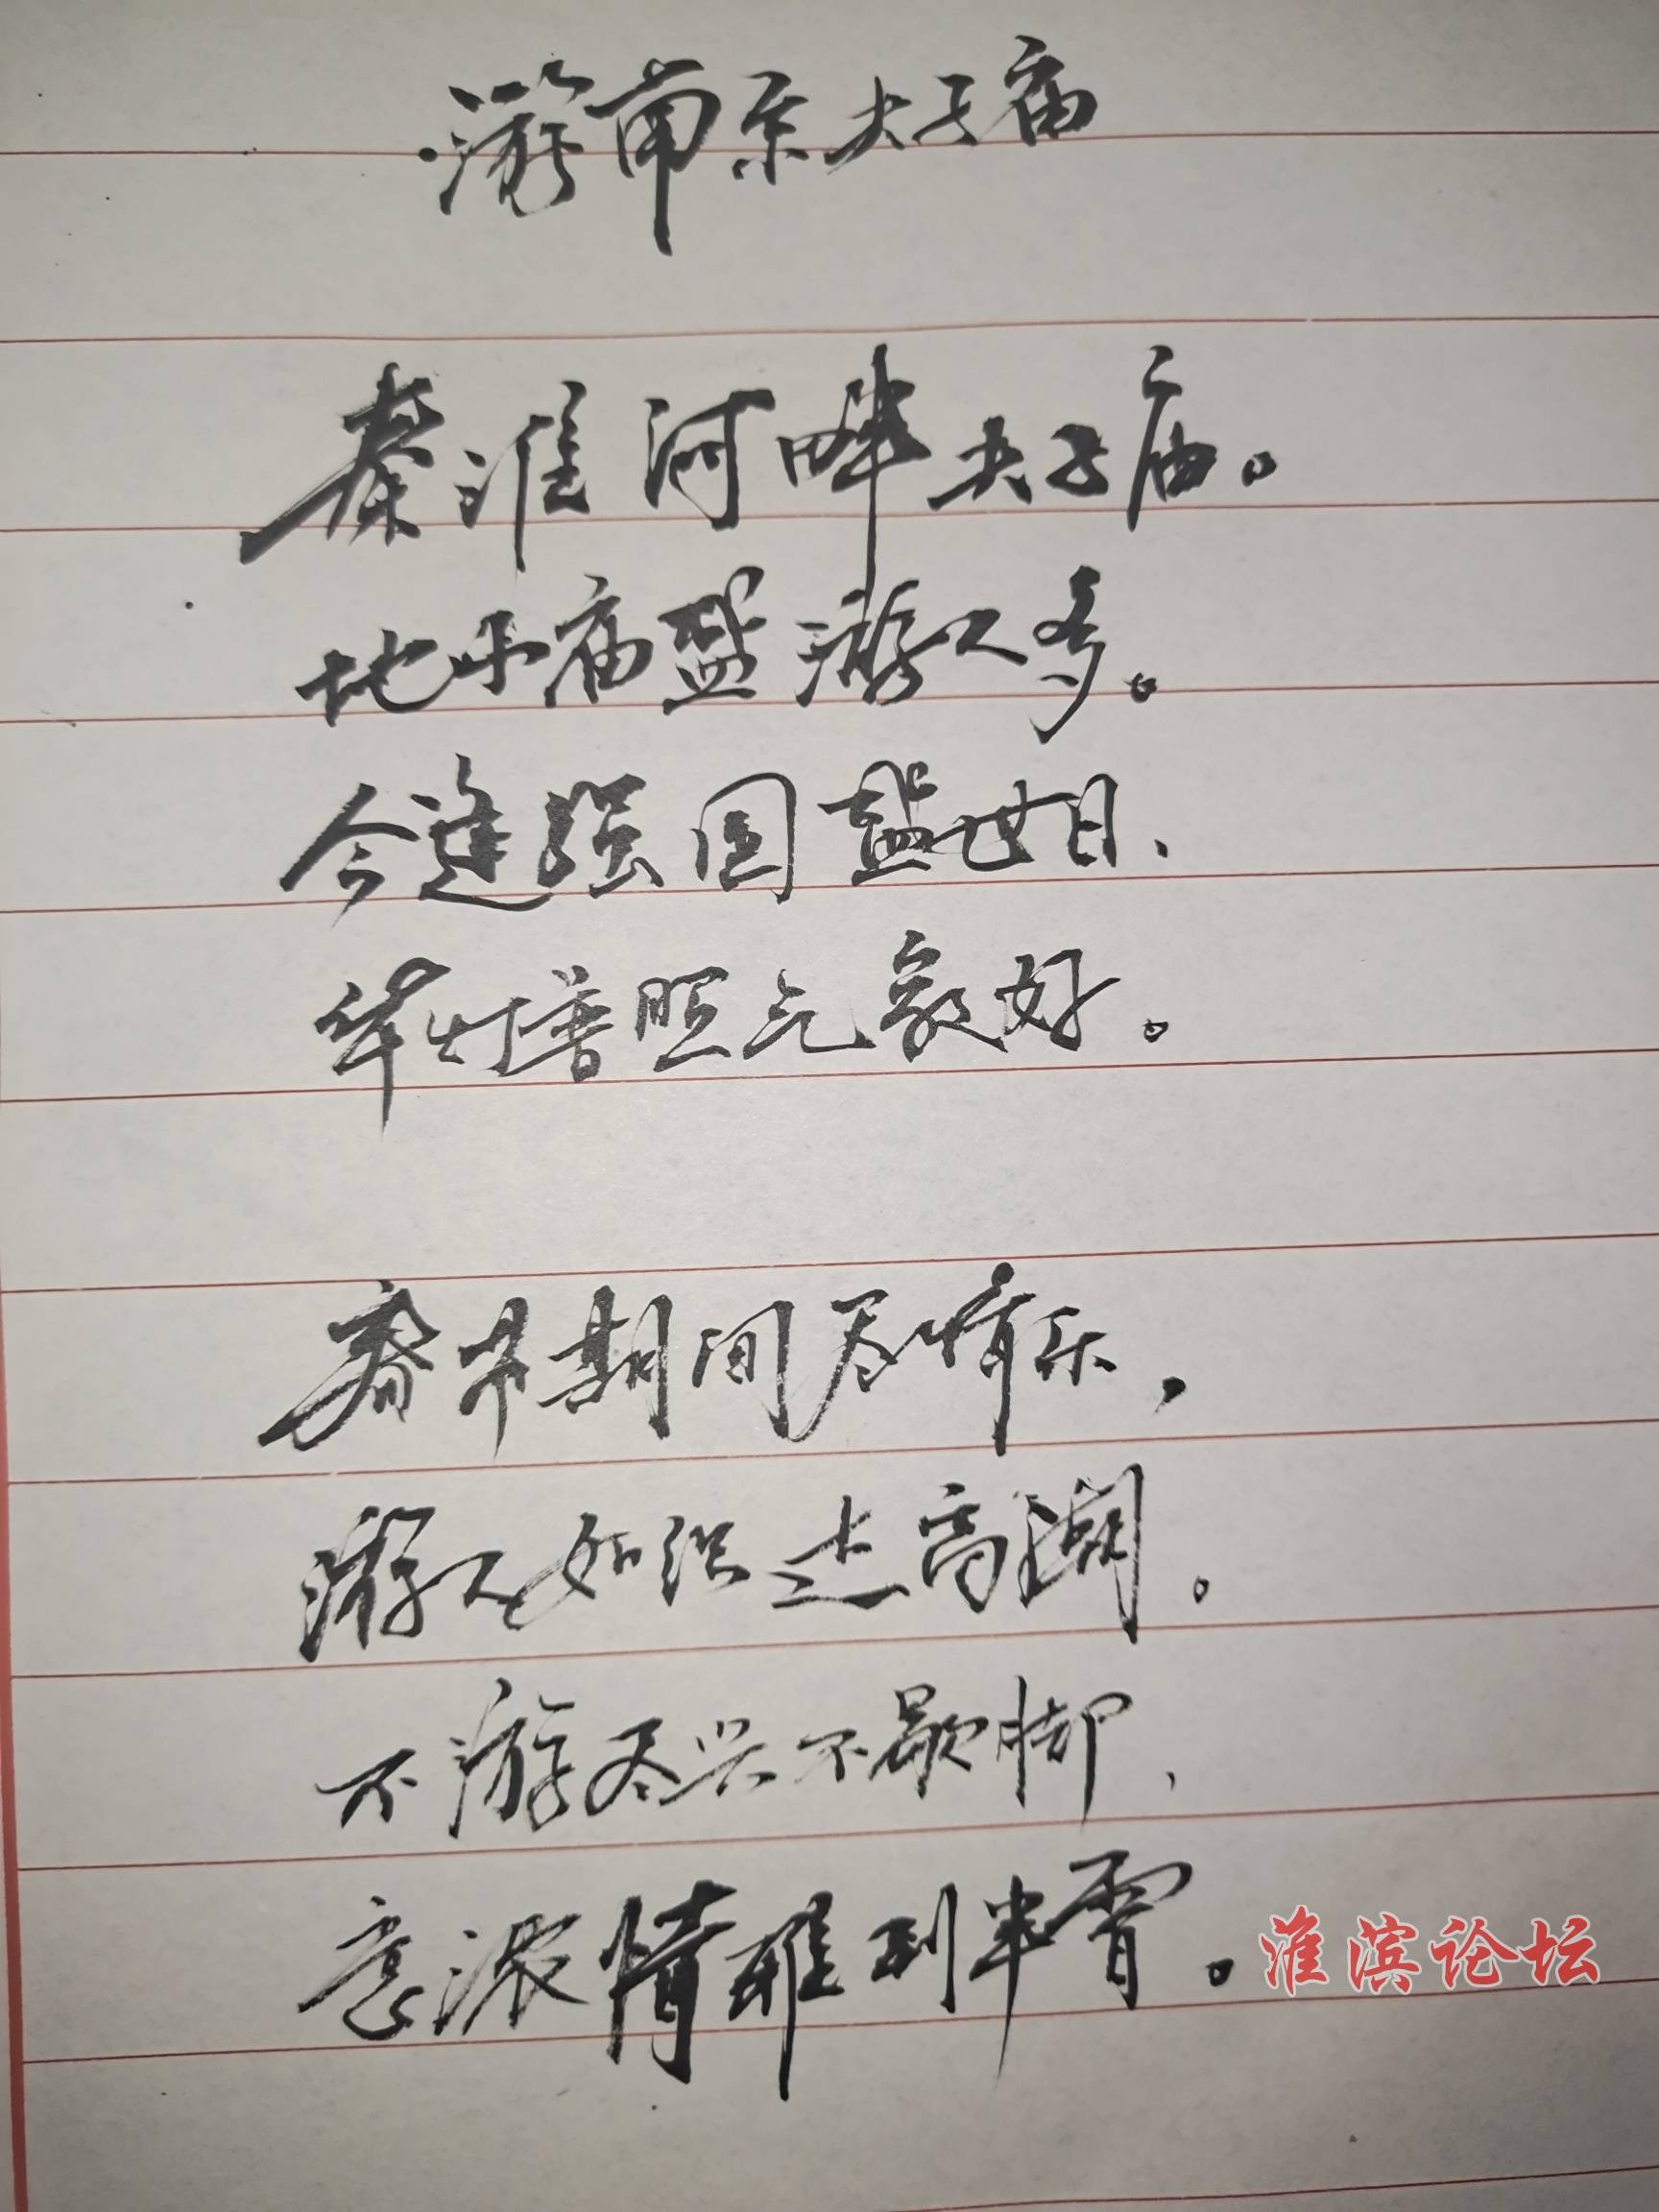 游南京夫子庙
秦淮河畔夫子庙。
地小庙盛游人多。
今逢强国盛世日、
华灯普照气象好。
春节期间尽情乐，
游人如织达高潮。
不游尽兴不歇脚、
意浓情难到半霄。
淮滨论坛